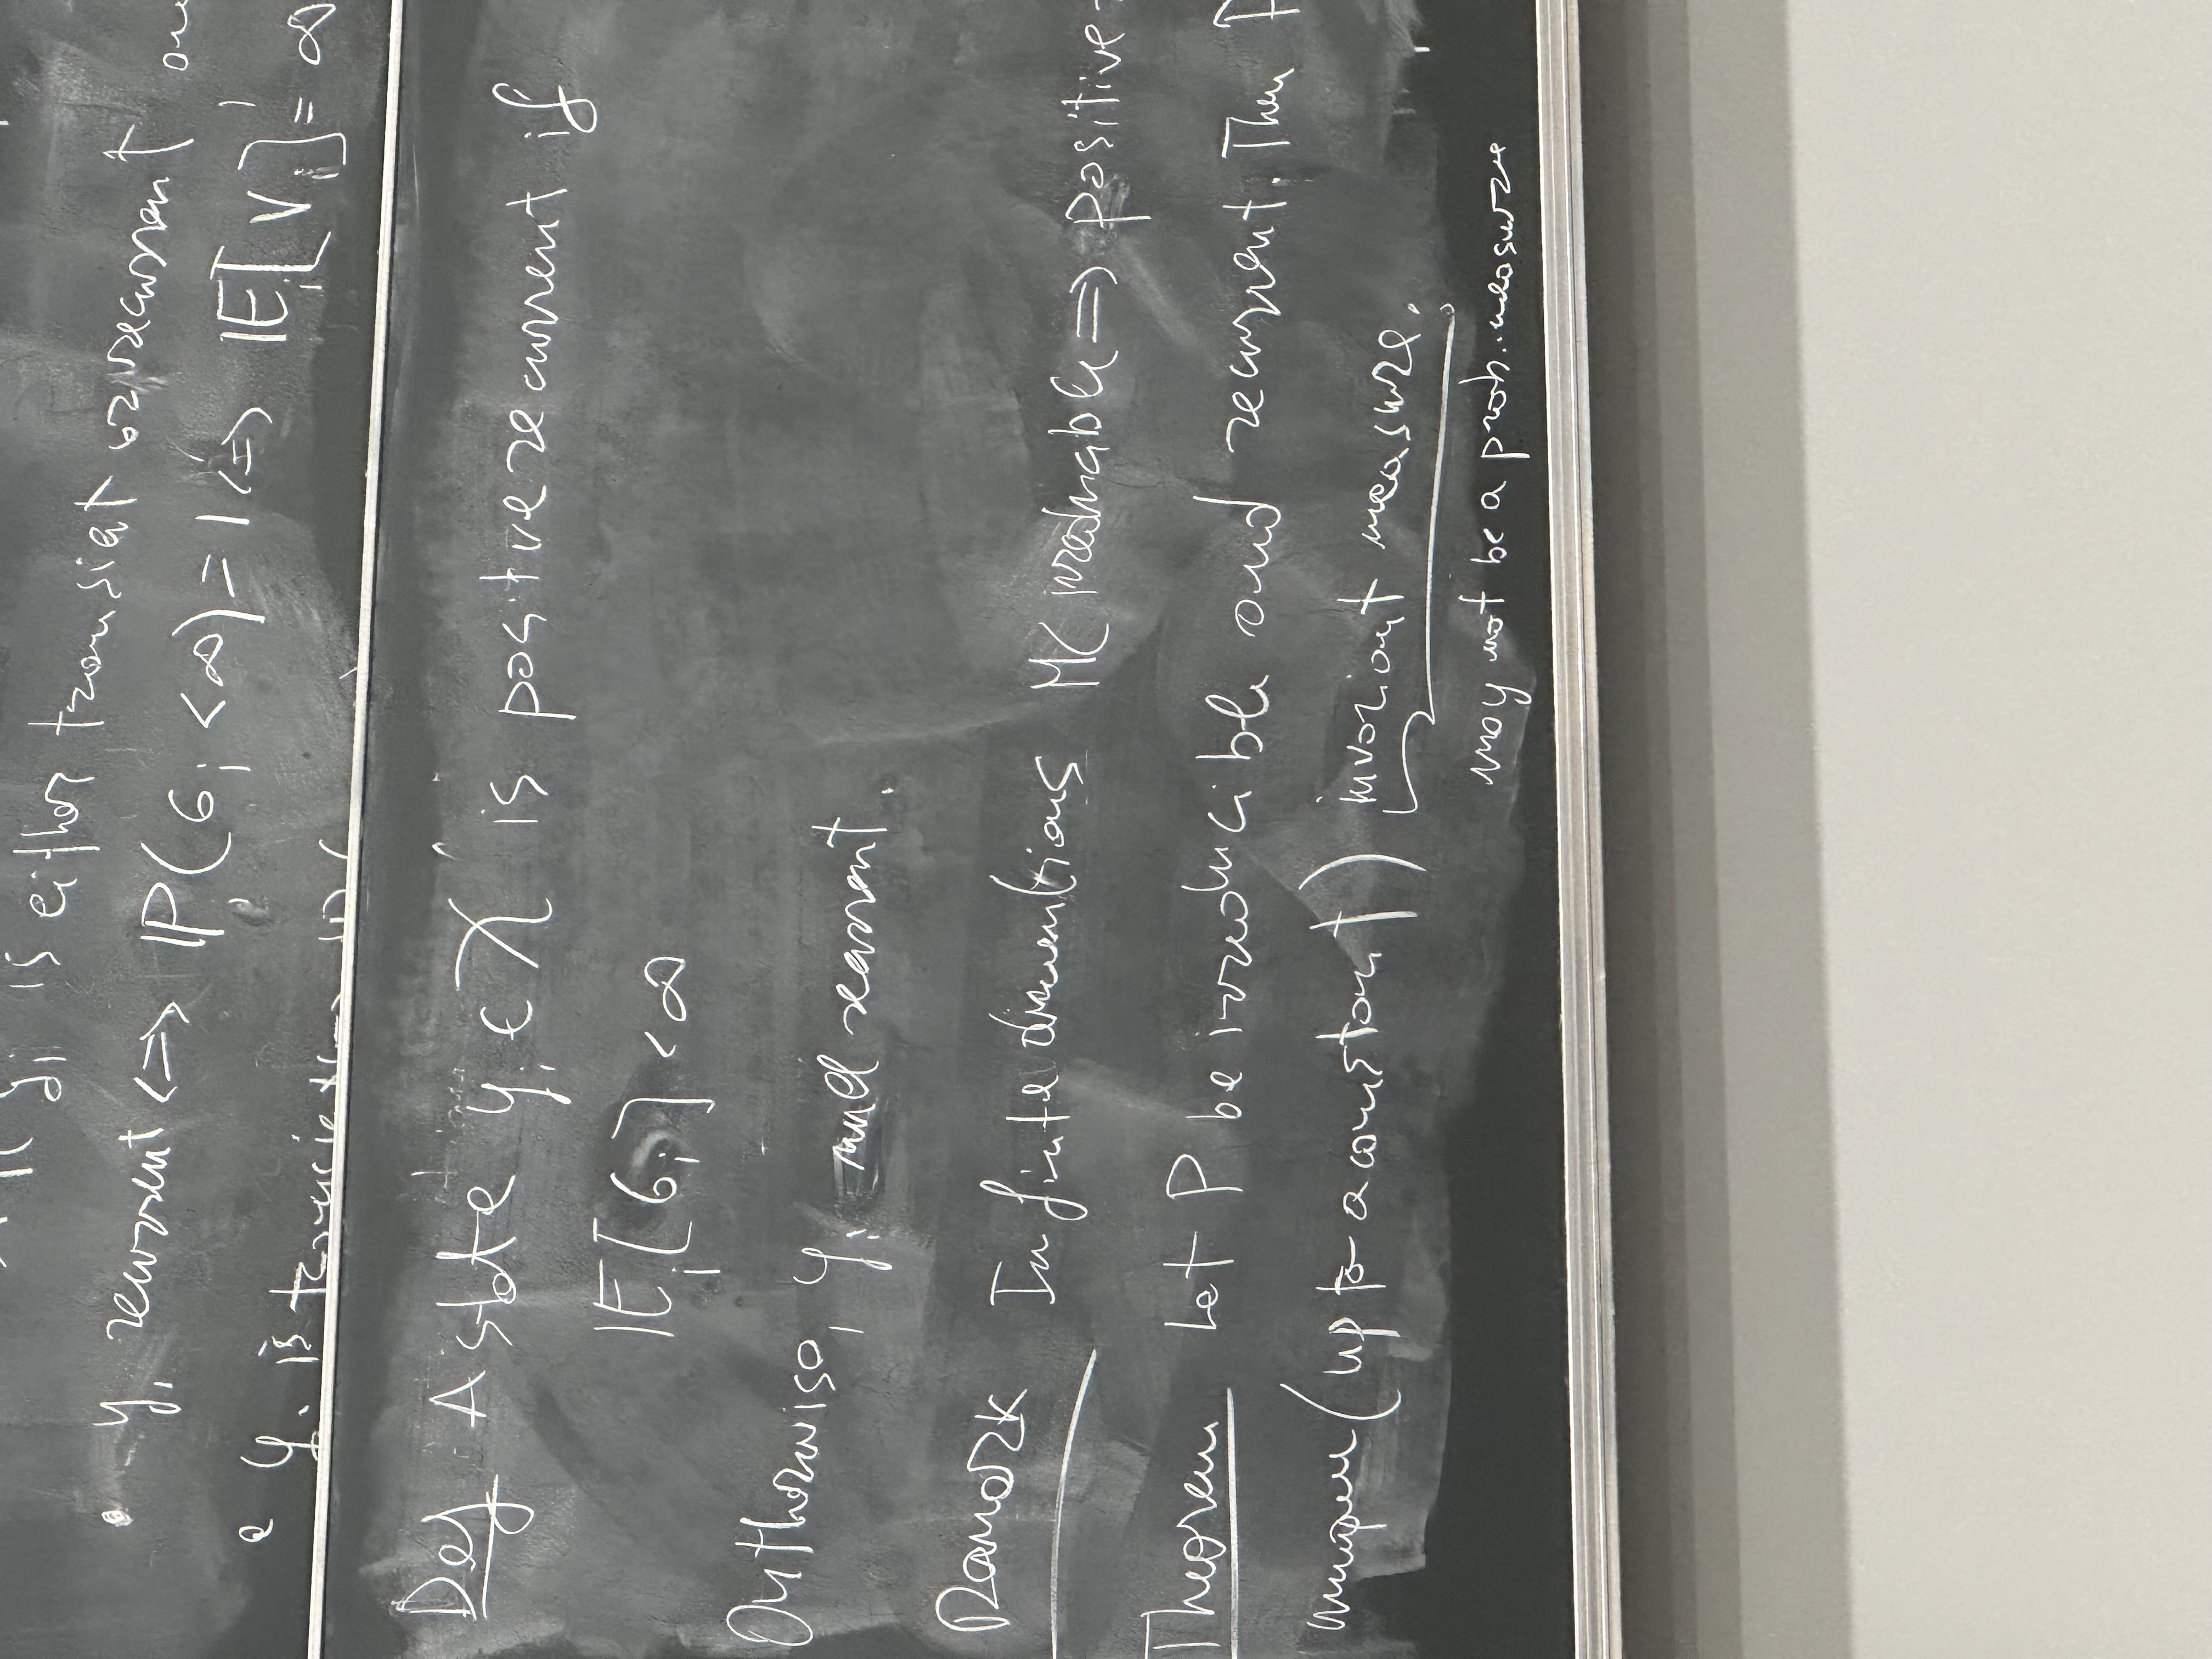 yᵢ is either transiet or recurrent
• yᵢ recurrent <=> ℙᵢ(σᵢ < ∞) = 1 <=> 𝔼ᵢ[Vᵢ] = ∞
• yᵢ is transient
Def A state yᵢ ∈ X is positive recurrent if
𝔼ᵢ[σᵢ] < ∞
Outherwise, yᵢ null recurrent.
Remark In finite dimentions MC irreducible => positive
Theorem Let P be irreducible and recurrent. Then
unique (up to a constant) invariant measure.
may not be a prob. measure